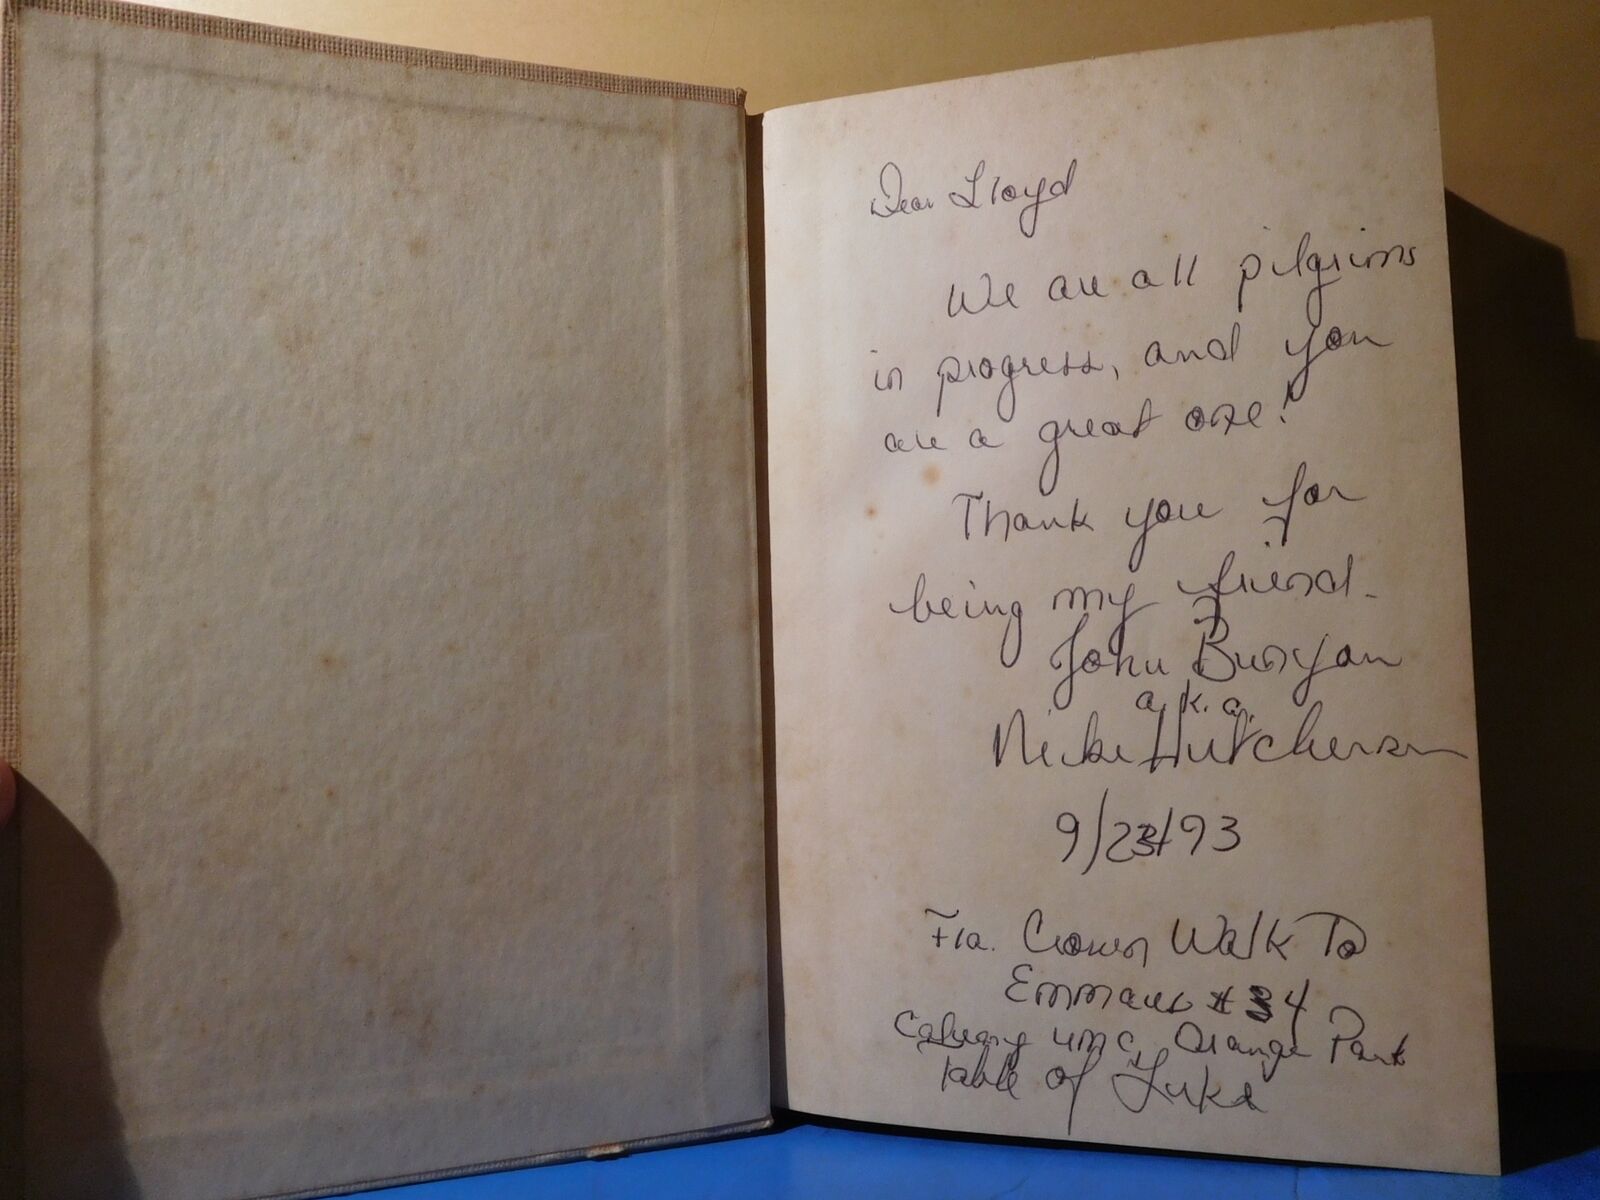 Dear Lloyd
We are all pilgrims
in progress, and you
are a great one!
Thank you for
being my friend.
John Bunyan
a.k.a.
Hutcherson
9/23/93
Fla. Crown Walk To
Emmaus # 34
Calvary UMC, Orange Park
Table of Luke